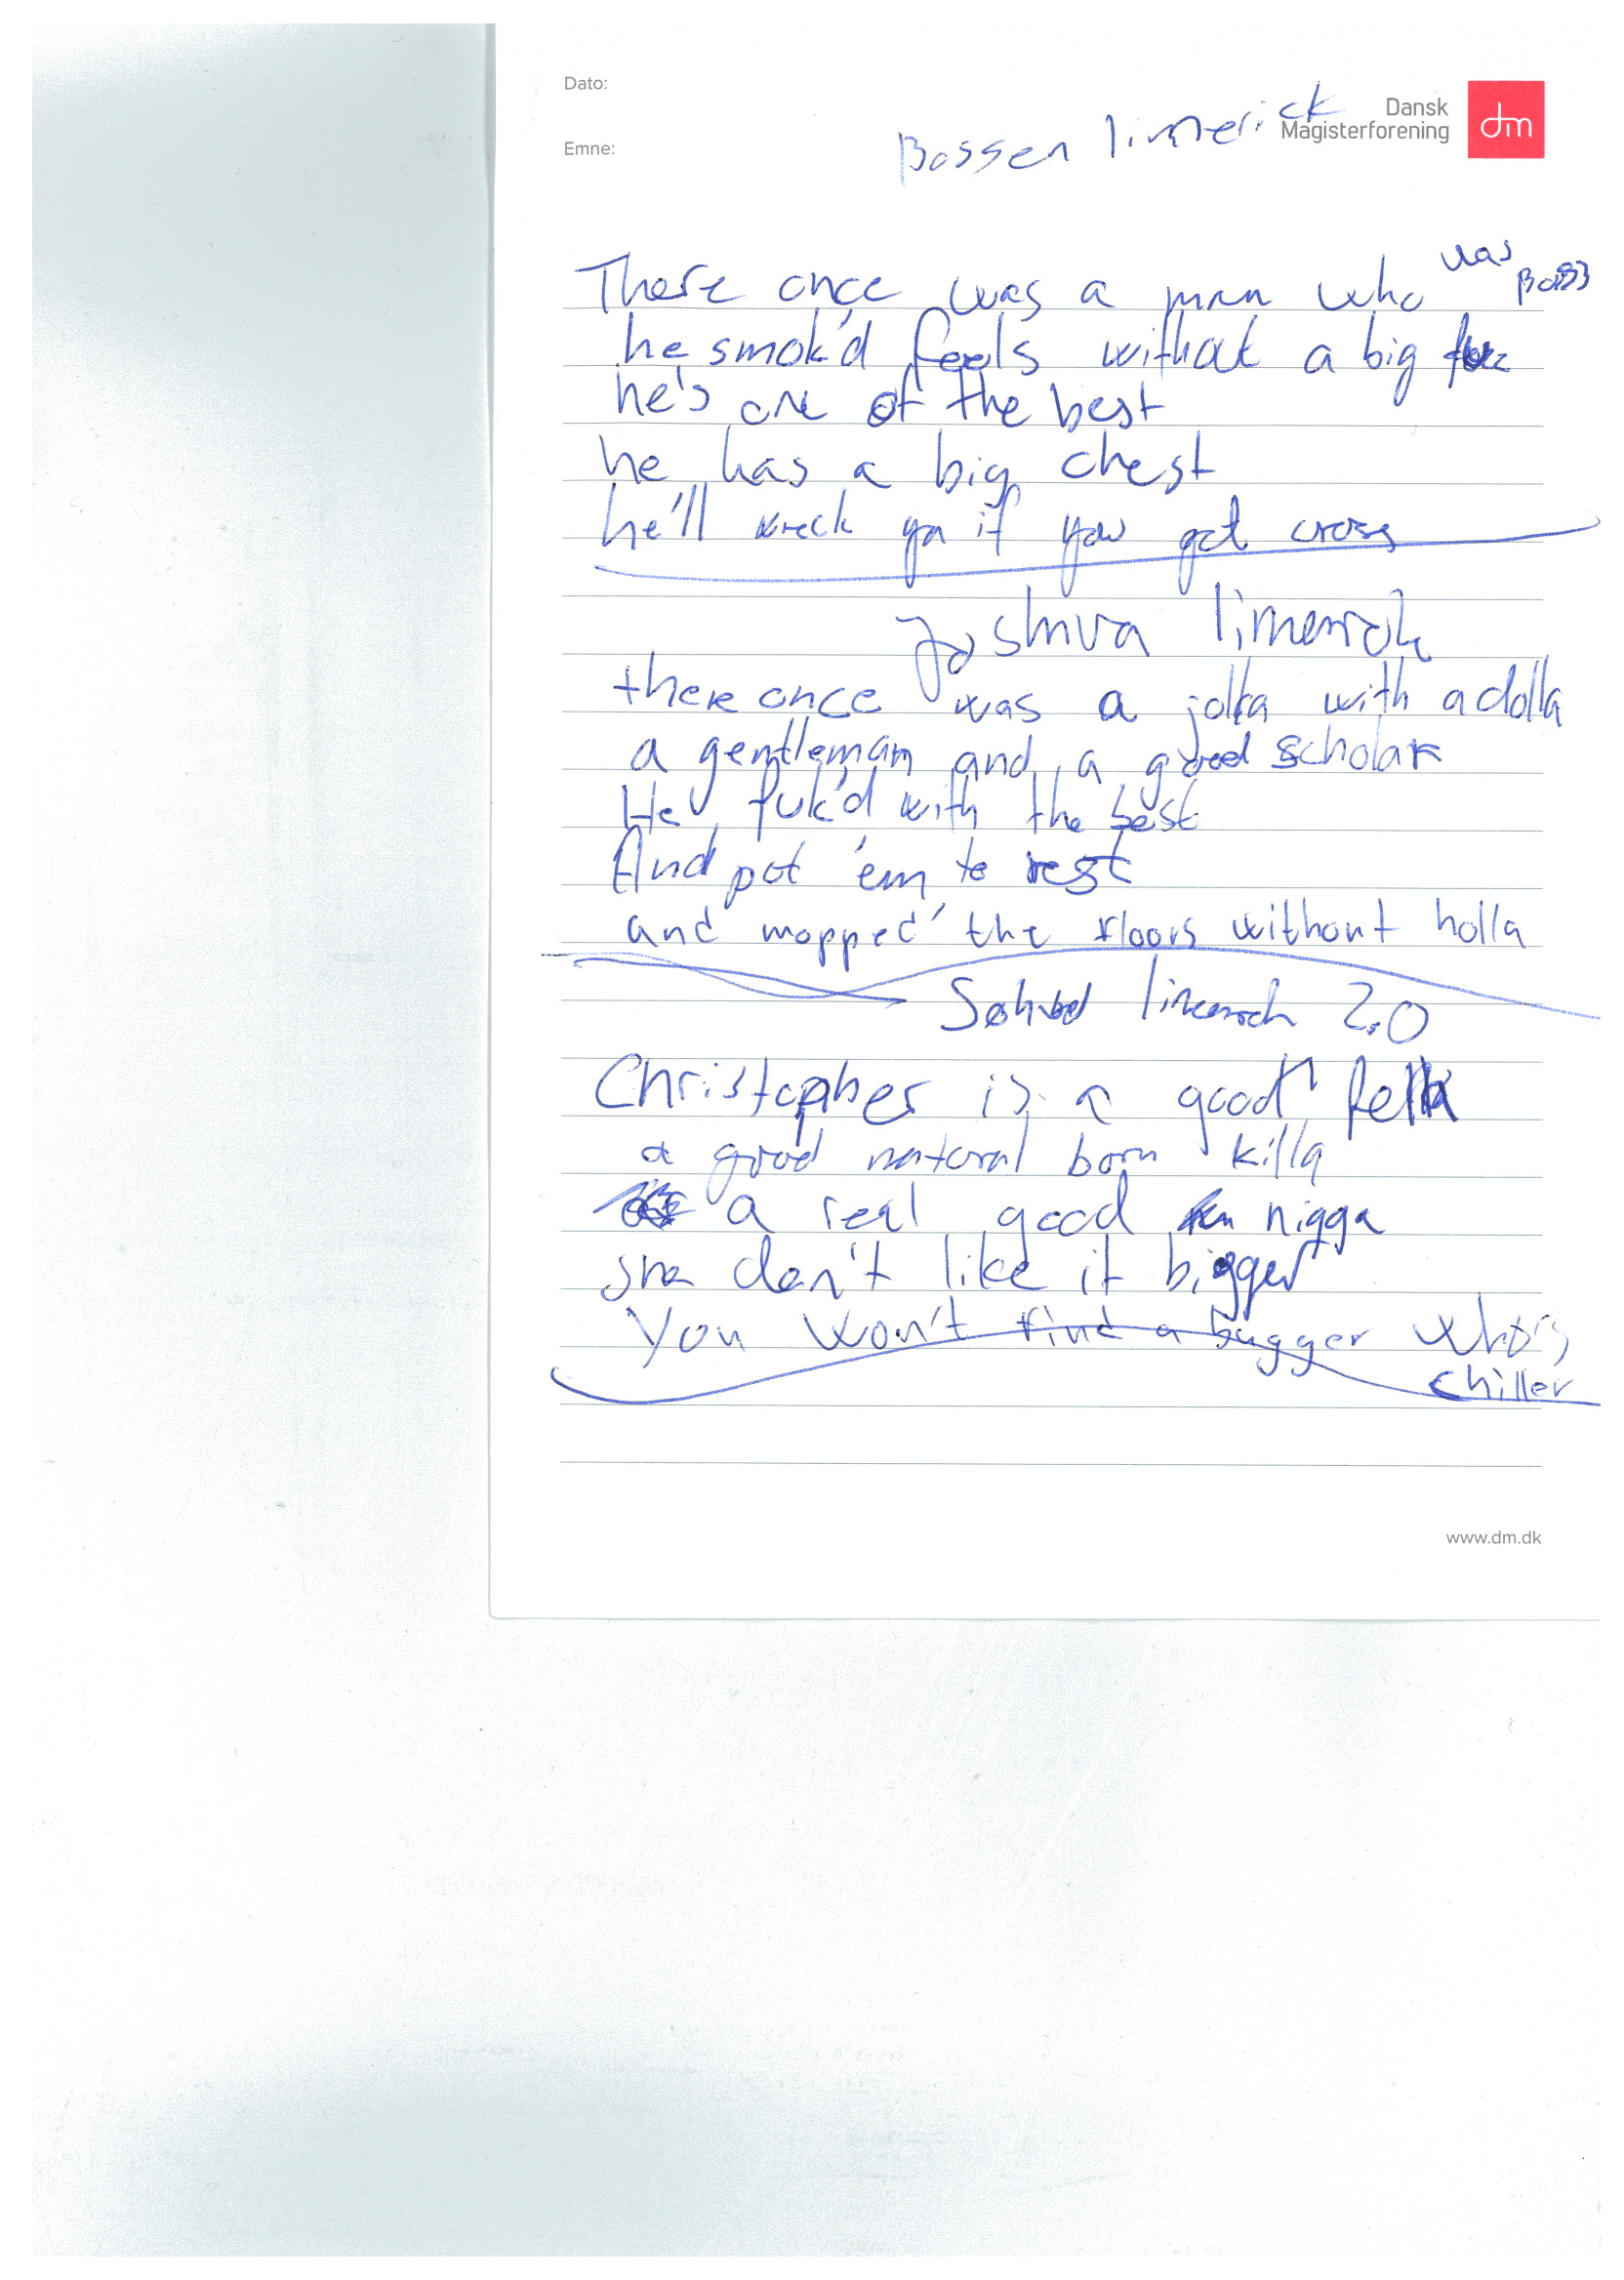 Dato:
Dansk
Magisterforening
dm
Emne:
Bossen limerick
There once was a man who was
he smok'd fools without a big
he's one of the best
he has a big chest
he'll wreck ya if you get cross
Joshua limerick
there once was a jolla with a dolla
a gentleman and a good scholar
He fuk'd with the best
And pot 'em to rest
and mopped the floors without holla
limerick 2.0
Christopher is a good fella
a good natural born killa
a real good nigga
she don't like it bigger
You won't find a bugger who's
chiller
www.dm.dk